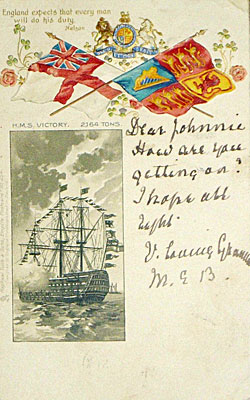 England expects that every man
will do his duty.
Nelson
H.M.S. VICTORY. 2164 TONS.
Dear Johnnie
How are you
getting on?
I hope all
right.
V. Loving
M. E. B.